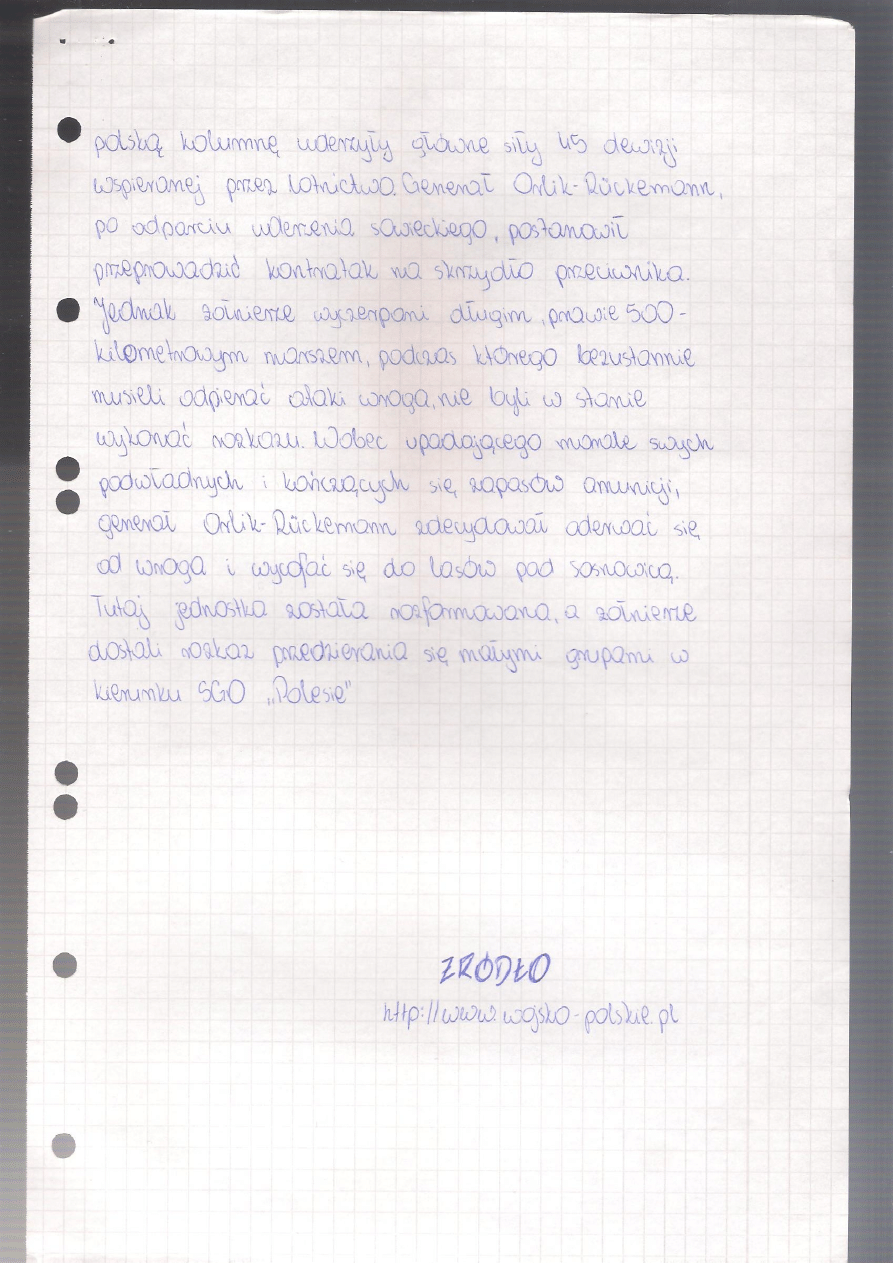 polską kolumnę uderzyły główne siły 45 dewizji
wspieranej przez lotnictwo. Generał Orlik-Rückemann,
po odparciu uderzenia sowieckiego, postanowił
przeprowadzić kontratak na skrzydło przeciwnika.
Jednak żołnierze wyczerpani długim, prawie 500-
kilometrowym marszem, podczas którego bezustannie
musieli odpierać ataki wroga, nie byli w stanie
wykonać rozkazu. Wobec upadającego morale swych
podwładnych i kończących się zapasów amunicji,
generał Orlik-Rückemann zdecydował oderwać się
od wroga i wycofać się do lasów pod Sosnowicą.
Tutaj jednostka została rozformowana, a żołnierze
dostali rozkaz przedzierania się małymi grupami w
kierunku SGO „Polesie"
ŹRÓDŁO
http://www.wojsko-polskie.pl